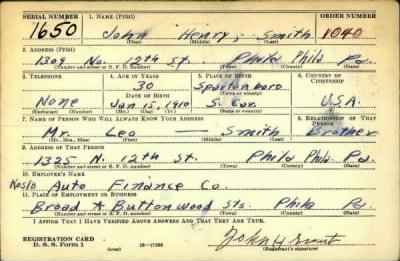 SERIAL NUMBER 1. NAME (Print) ORDER NUMBER
1650 John Henry, Smith 1040
(First) (Middle) (Last)
2. ADDRESS (Print)
1309 N. 12th st. Phila Phila Pa.
(Number and street or R. F. D. number) (Town) (County) (State)
3. TELEPHONE 4. AGE IN YEARS 5. PLACE OF BIRTH 6. COUNTRY OF CITIZENSHIP
30 Spartenboro
DATE OF BIRTH (Town or county)
None Jan 15, 1910 S. Car. U.S.A.
(Exchange) (Number) (Mo.) (Day) (Yr.) (State or country)
7. NAME OF PERSON WHO WILL ALWAYS KNOW YOUR ADDRESS 8. RELATIONSHIP OF THAT PERSON
Mr. Leo — Smith Brother
(Mr., Mrs., Miss) (First) (Middle) (Last)
9. ADDRESS OF THAT PERSON
1325 N. 12th st. Phila Phila Pa.
(Number and street or R. F. D. number) (Town) (County) (State)
10. EMPLOYER'S NAME
Auto Finance Co.
11. PLACE OF EMPLOYMENT OR BUSINESS
Broad & Buttonwood sts. Phila Pa.
(Number and street or R. F. D. number) (Town) (County) (State)
I AFFIRM THAT I HAVE VERIFIED ABOVE ANSWERS AND THAT THEY ARE TRUE.
REGISTRATION CARD
D. S. S. Form 1 (over) 16-17105 (Registrant's signature)